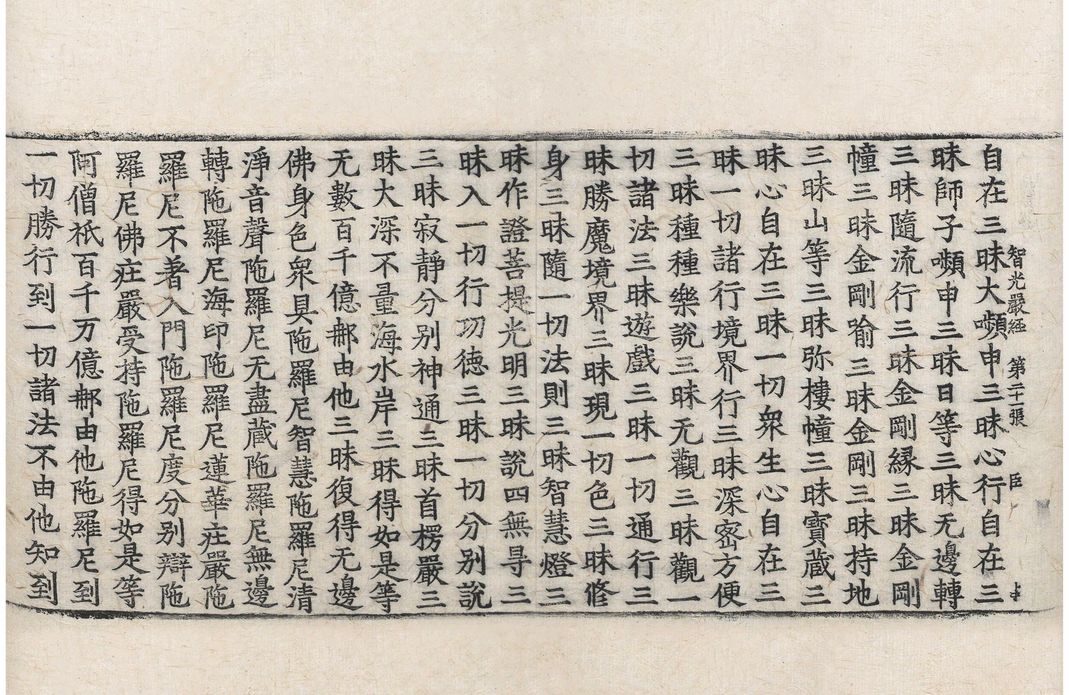 智光嚴經 第二十張 臣
自在三昧大嚬申三昧心行自在三
昧師子嚬申三昧日等三昧无邊轉
三昧隨流行三昧金剛緣三昧金剛
幢三昧金剛喻三昧金剛三昧持地
三昧山等三昧弥樓幢三昧寶蔵三
昧心自在三昧一切衆生心自在三
昧一切諸行境界行三昧深密方便
三昧種種樂說三昧无觀三昧觀一
切諸法三昧遊戲三昧一切通行三
昧勝魔境界三昧現一切色三昧修
身三昧隨一切法則三昧智慧燈三
昧作證菩提光明三昧說四無㝵三
昧入一切行功德三昧一切分別說
三昧寂靜分別神通三昧首楞嚴三
昧大深不量海水岸三昧得如是等
无數百千億那由他三昧復得无邊
佛身色衆具陁羅尼智慧陁羅尼清
淨音聲陁羅尼无盡蔵陁羅尼無邊
轉陁羅尼海印陁羅尼蓮華庄嚴陁
羅尼不著入門陁羅尼度分別辯陁
羅尼佛庄嚴受持陁羅尼得如是等
阿僧祇百千万億那由他陁羅尼到
一切勝行到一切諸法不由他知到